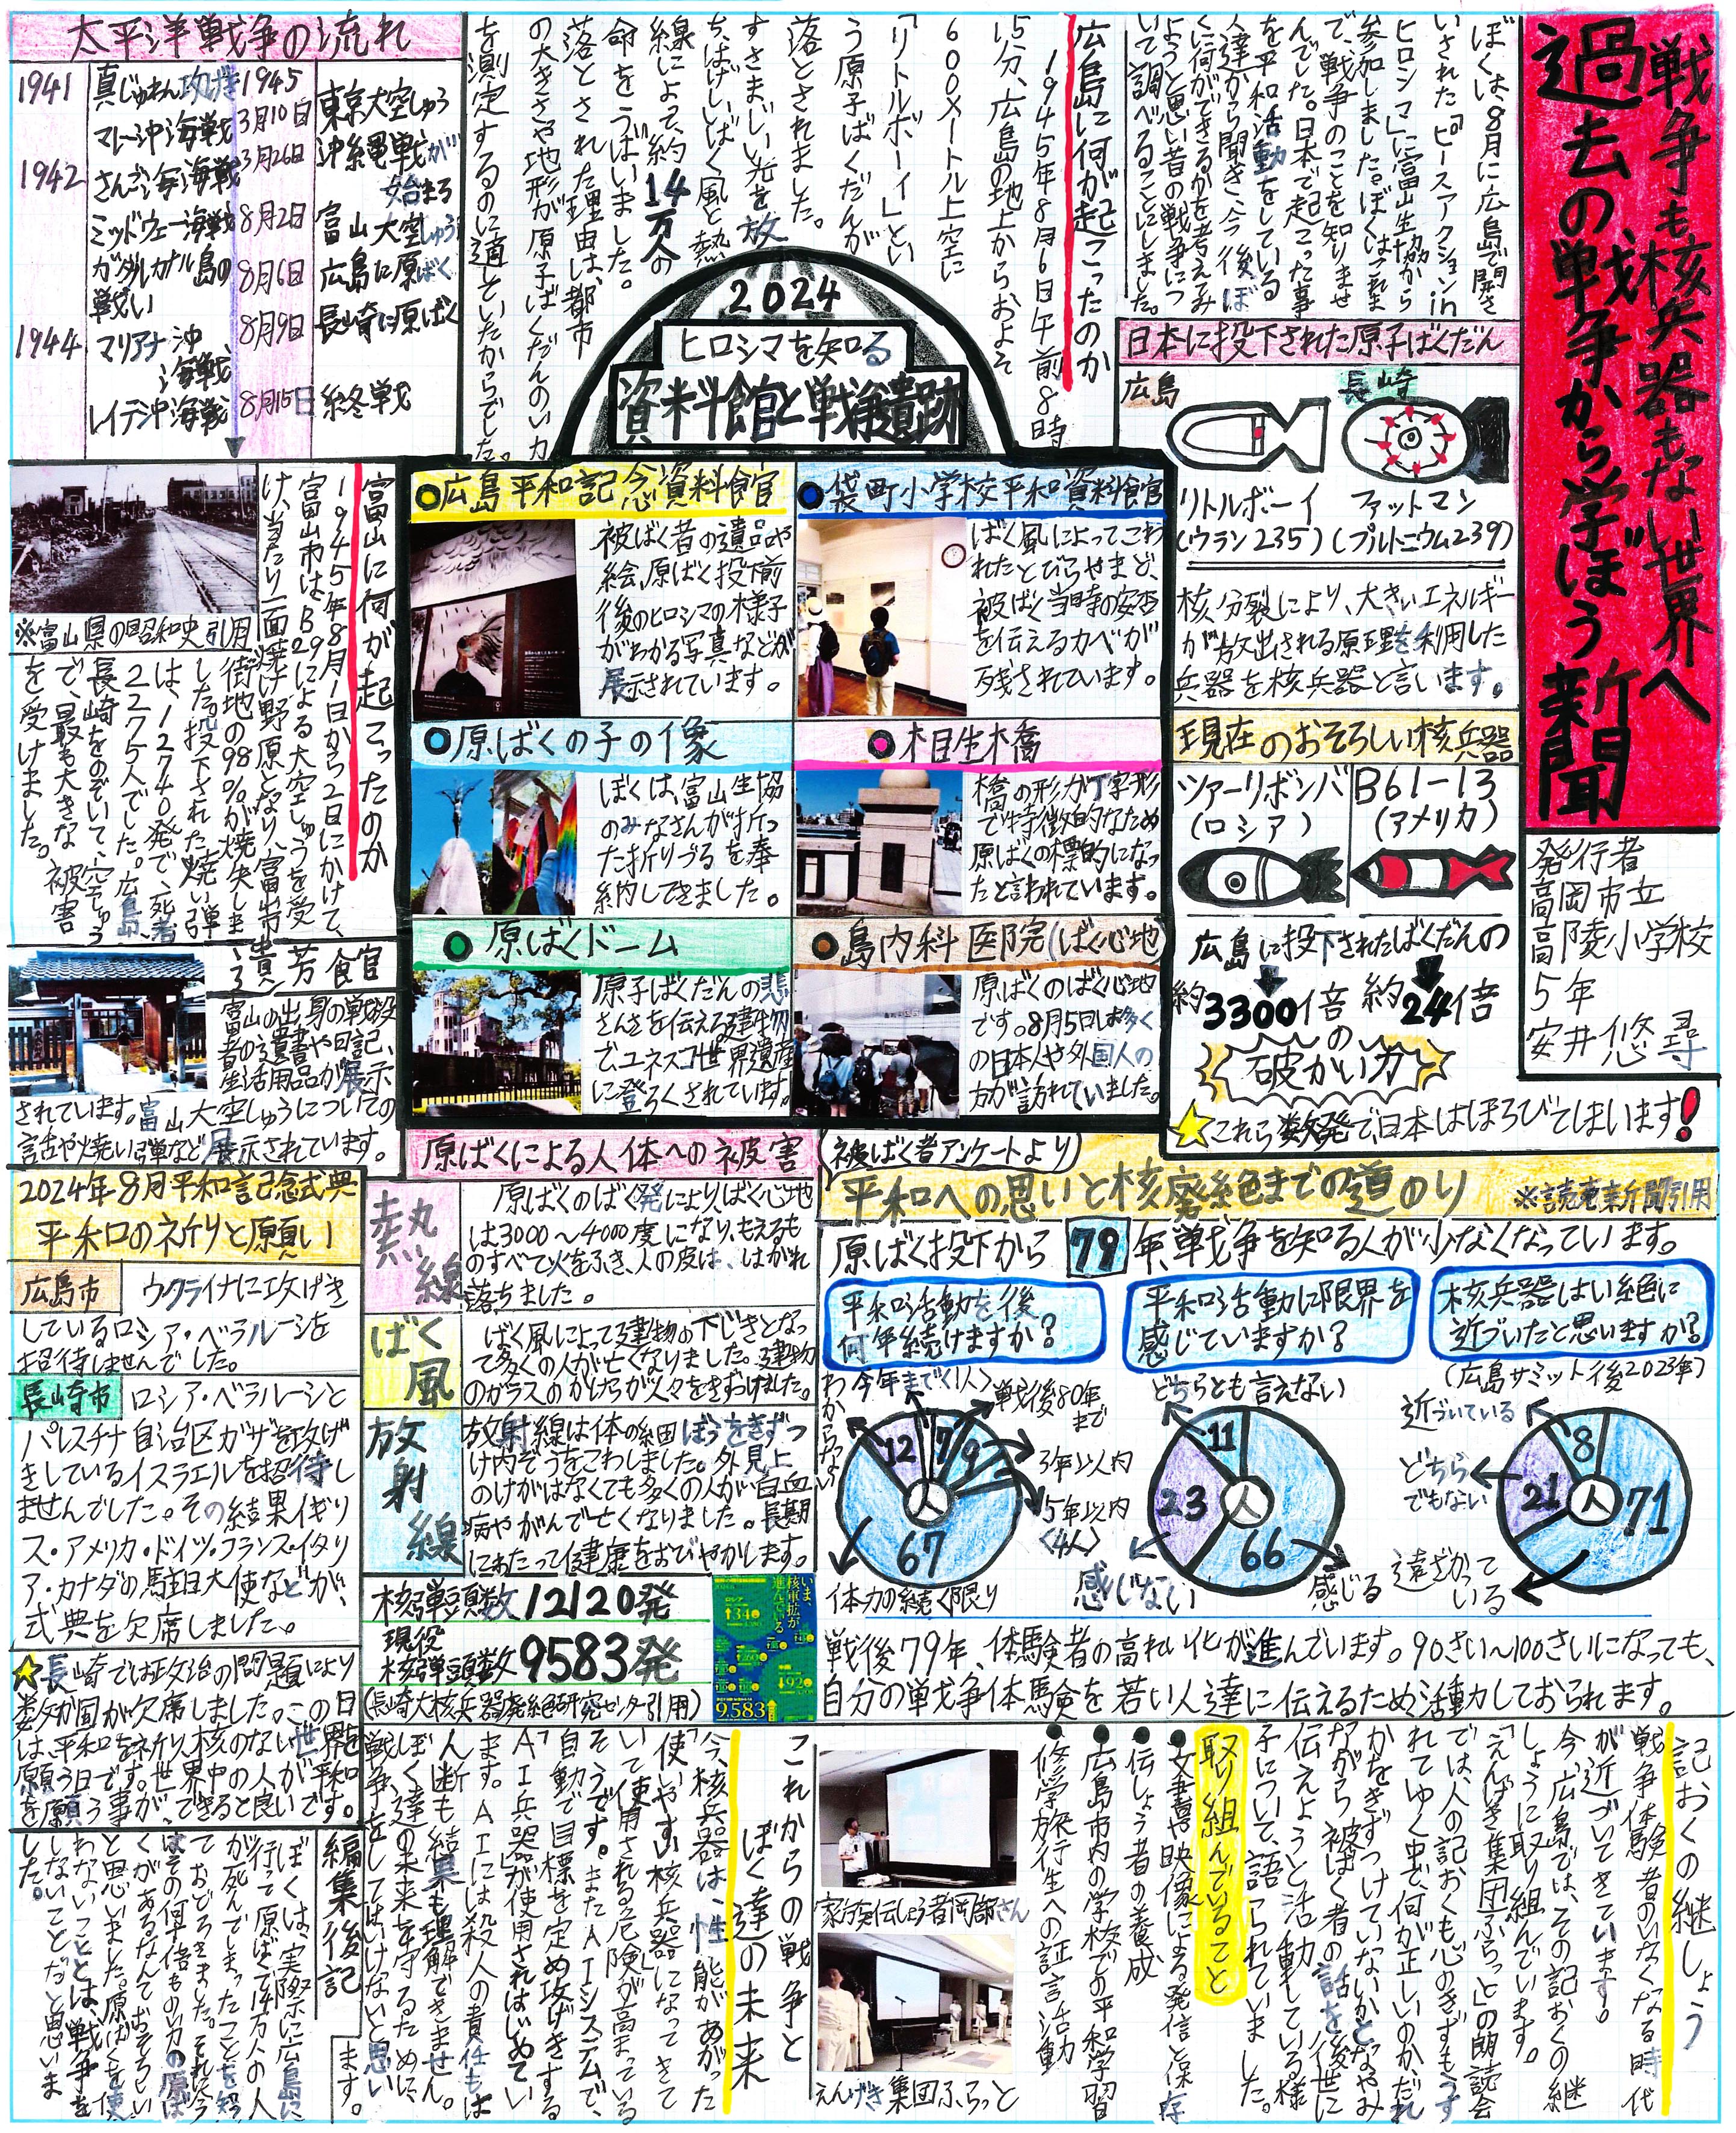 戦争も核兵器もない世界へ
過去の戦争から学ぼう新聞
発行者
高岡市立
高陵小学校
5年
安井悠尋
ぼくは、8月に広島で開さ
いされた「ピースアクションin
ヒロシマ」に富山生協から
参加しました。ぼくはこれま
で、戦争のことを知りませ
んでした。日本で起こった事
を平和活動をしている
人達から聞き、今後ぼ
くに何ができるかを考えてみ
ようと思い昔の戦争につ
いて調べることにしました。
広島に何が起こったのか
1945年8月6日午前8時
15分、広島の地上からおよそ
600メートル上空に
「リトルボーイ」とい
う原子ばくだんが
落とされました。
すさまじい光を放
ち、はげしいばく風と熱
線によって、約14万人の
命をうばいました。
落とされた理由は、都市
の大きさや地形が原子ばくだんのい力
を測定するのに適していたからでした。
太平洋戦争の流れ
1941
真じゅわん攻げき
マレー沖海戦
1942
さんご海海戦
ミッドウェー海戦
ガダルカナル島の
戦い
1944
マリアナ沖
海戦
レイテ沖海戦
1945
3月10日
東京大空しゅう
3月26日
沖縄戦が
始まる
8月2日
富山大空しゅう
8月6日
広島に原ばく
8月9日
長崎に原ばく
8月15日
終戦
日本に投下された原子ばくだん
広島
長崎
リトルボーイ
(ウラン235)
ファットマン
(プルトニウム239)
核分裂により、大きいエネルギー
が放出される原理を利用した
兵器を核兵器と言います。
現在のおそろしい核兵器
ツァーリボンバ
(ロシア)
B61-13
(アメリカ)
広島に投下されたばくだんの
約3300倍
約24倍
の
破かい力
これら数発で、日本はほろびてしまいます!
2024
ヒロシマを知る
資料館と戦争遺跡
広島平和記念資料館
被ばく者の遺品や
絵、原ばく投下前
後のヒロシマの様子
がわかる写真などが
展示されています。
袋町小学校平和資料館
ばく風によってこわ
れたとびらやまど、
被ばく当時の安否
を伝えるカベが
残されています。
原ばくの子の像
ぼくは、富山生協
のみなさんが折っ
た折りづるを奉
納してきました。
相生橋
橋の形がT字形
で特徴的なため
原ばくの標的になっ
たと言われています。
原ばくドーム
原子ばくだんの悲
さんさを伝える建物
でユネスコ世界遺産
に登ろくされています。
島内科医院(ばく心地)
原ばくのばく心地
です。8月5日は多く
の日本人や外国人の
方が訪れていました。
富山に何が起こったのか
1945年8月1日から2日にかけて、
富山市はB29による大空しゅうを受
け、当たり一面焼け野原となり、富山市
街地の98%が焼失しま
した。投下された焼い弾
は、12740発で、死者
2275人でした。広島、
長崎をのぞいて、空しゅう
で、最も大きな被害
を受けました。
※富山県の昭和史引用
遺芳館
富山の出身の戦没
者の遺書や日記、
生活用品が展示
されています。富山大空しゅうについての
話や焼い弾など展示されています。
2024年8月平和記念式典
平和の祈りと願い
広島市
ウクライナに攻げき
しているロシア・ベラルーシを
招待しませんでした。
長崎市
ロシア・ベラルーシと
パレスチナ自治区ガザを攻げ
きしているイスラエルを招待し
ませんでした。その結果イギリ
ス・アメリカ・ドイツ・フランス・イタリ
ア・カナダの駐日大使などが、
式典を欠席しました。
長崎では政治の問題により
数か国が欠席しました。この日
は、平和を祈り、核のない世界を
願う日です。世界中の人が平和
を願う事ができると良いです。
原ばくによる人体への被害
熱線
原ばくのばく発により、ばく心地
は3000〜4000度になり、もえるも
のすべて火をふき、人の皮は、はがれ
落ちました。
ばく風
ばく風によって建物の下じきとなっ
て多くの人が亡くなりました。建物
のガラスのかけらが人々をきずつけました。
放射線
放射線は体の細ぼうをきずつ
け内ぞうをこわしました。外見上
のけがはなくても多くの人が白血
病やがんで亡くなりました。長期
にわたって健康をおびやかします。
核弾頭数12120発
現役
核弾頭数9583発
(長崎大核兵器廃絶研究センター引用)
いま、
核軍拡が
進んでいる
9583
(被ばく者アンケートより)
平和への思いと核廃絶までの道のり
※読売新聞引用
原ばく投下から79年、戦争を知る人が少なくなっています。
平和活動を後
何年続けますか?
今年まで〈1人〉
戦後80年
まで
3年以内
5年以内
〈4人〉
わからない
体力の続く限り
12
7
9
67
人
平和活動に限界を
感じていますか?
どちらとも言えない
感じない
感じる
11
23
66
人
核兵器はい絶に
近づいたと思いますか?
(広島サミット後2023年)
近づいている
どちら
でもない
遠ざかって
いる
8
21
71
人
戦後79年、体験者の高れい化が進んでいます。90さい〜100さいになっても、
自分の戦争体験を若い人達に伝えるため活動しておられます。
記おくの継しょう
戦争体験者のいなくなる時代
が近づいてきています。
今、広島では、その記おくの継
しょうに取り組んでいます。
「えんげき集団ふらっと」の朗読会
では、人の記おくも心のきずもうす
れてゆく中で、何が正しいのかだれ
かをきずつけていないかとなやみ
ながら、被ばく者の話を後世に
伝えようと活動している様
子について、語られていました。
取り組んでいること
●文書や映像による発信と保存
●伝しょう者の養成
●広島市内の学校での平和学習
●修学旅行生への証言活動
家族伝しょう者岡部さん
えんげき集団ふらっと
これからの戦争と
ぼく達の未来
今、核兵器は、性能があがった
「使いやすい核兵器」になってきて
いて使用される危険が高まっている
そうです。またAIシステムで、
自動で目標を定め攻げきする
「AI兵器」が使用されはじめてい
ます。AIには殺人の責任もは
ん断も結果も理解できません。
ぼく達の未来を守るために、
戦争をしてはいけないと思い
ます。
編集後記
ぼくは、実際に広島に
行って原ばくで14万人の人
が死んでしまったことを知っ
ておどろきました。それに今
はその何千倍ものい力の原ば
くがあるなんておそろしい
と思いました。原ばくを使
わないこととは、戦争を
しないことだと思いま
した。